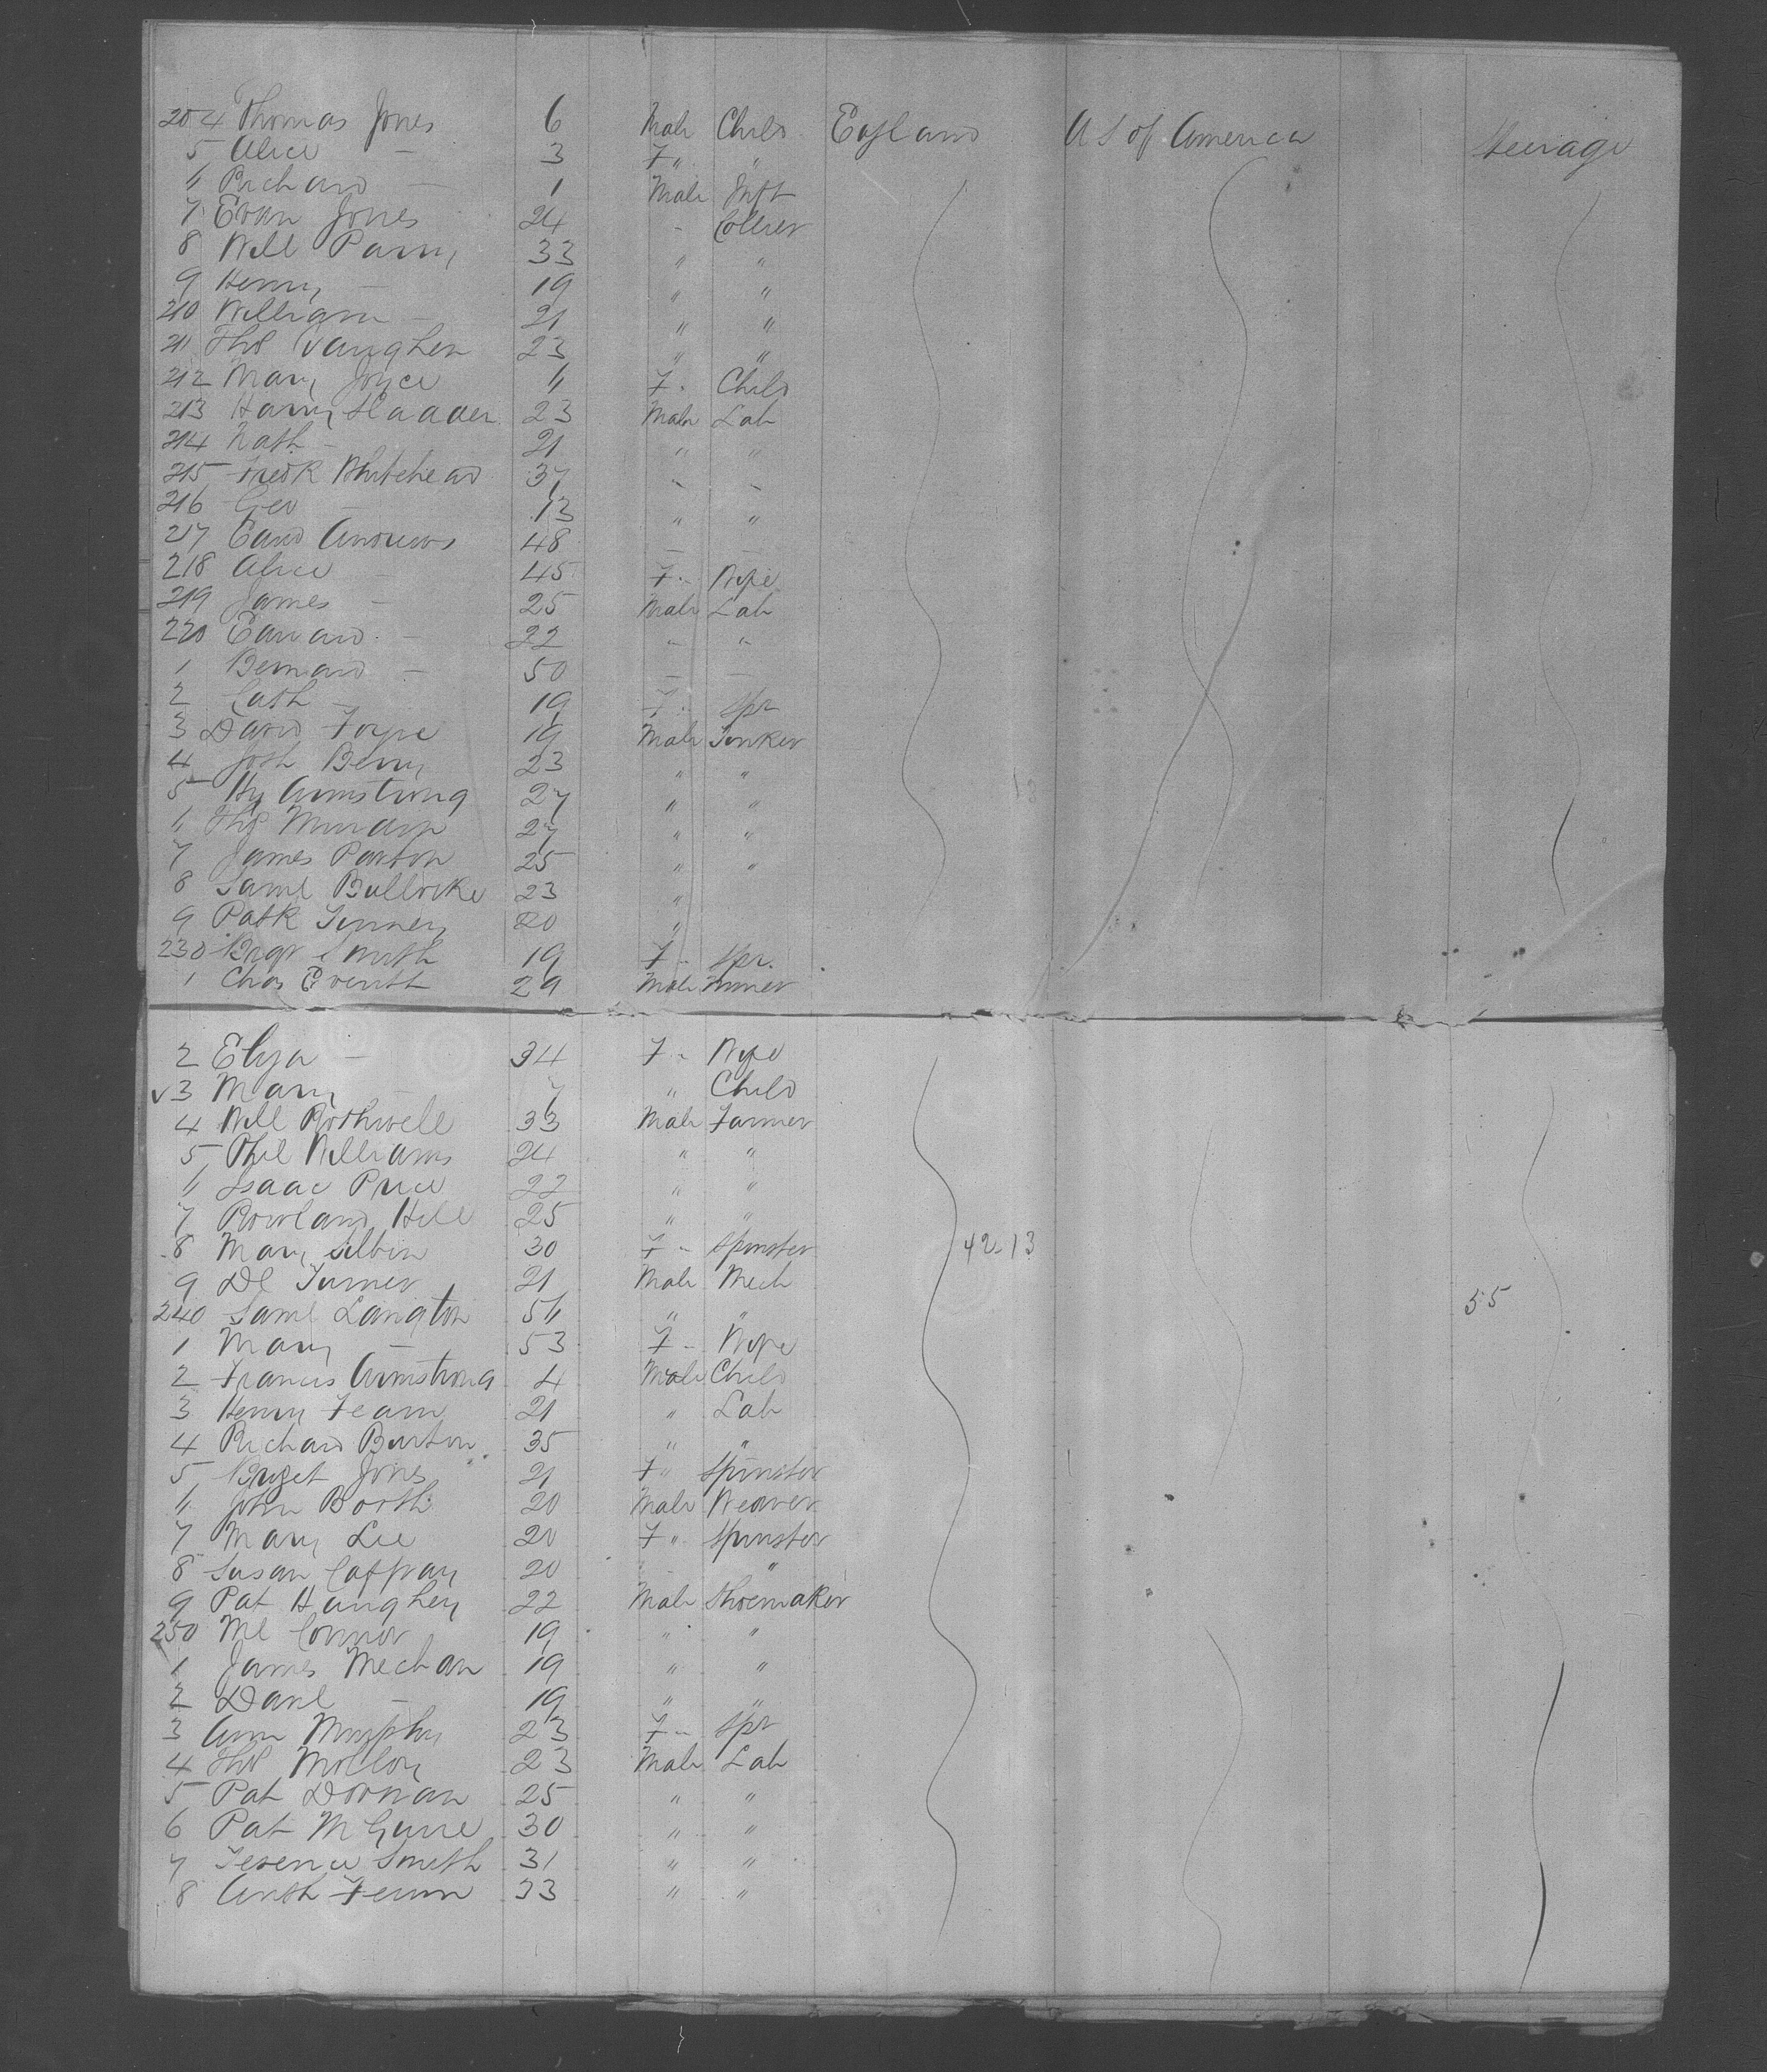 204 Thomas Jones 6 Male Child England U S of America Steerage
5 Alice — 3 F " "
6 Richard — 1 Male Inft
7 Evan Jones 24 - Collier
8 Will Parry 33 " "
9 Henry — 19 " "
210 William — 21 " "
211 Thos Vaughen 23 " "
212 Mary Joyce 11 F. Child
213 Harry 23 Male Lab
214 Nath — 21 " "
215 Fredk Whitehead 37 " "
216 Geo — 13 " "
217 Edwd Andrews 48 — —
218 Alice — 45 F. Wife
219 James — 25 Male Lab
220 Edward — 22 " "
1 Bernard — 50 — —
2 Cath — 19 F. Spr
3 David 19 Male
4 Josh Berry 23 " "
5 Hy Armstrong 27 " "
6 Thos 27 " "
7 James Parton 25 " "
8 Saml 23 "
9 Patk 20 "
230 Brgt Smith 19 F. Spr.
1 Chas Everitt 29 Male Miner
2 Eliza — 34 F. Wife
3 Mary — 7 " Child
4 Will Rothwell 33 Male Farmer
5 Phil Williams 24 " "
6 Isaac Price 22 " "
7 Rowland Hill 25 " "
8 Mary Albin 30 F. Spinster 42-13
9 Dl Turner 21 Male Mech
240 Saml Langton 56 " " 55
1 Mary — 53 F. Wife
2 Francis Armstrong 4 Male Child
3 Henry 21 " Lab
4 Richard Burton 35 " "
5 Briget Jones 21 F " Spinster
6 John Booth 20 Male Weaver
7 Mary Lee 20 F " Spinster
8 Susan Caffray 20 "
9 Pat Haughey 22 Male Shoemaker
250 Ml Connor 19 " "
1 James Mechan 19 " "
2 Danl — 19 " "
3 Ann Murphy 23 F. Spr
4 Thos Molloy 23 Male Lab
5 Pat Doonan 25 " "
6 Pat McGuire 30 " "
7 Terence Smith 31 " "
8 Anth 33 " "